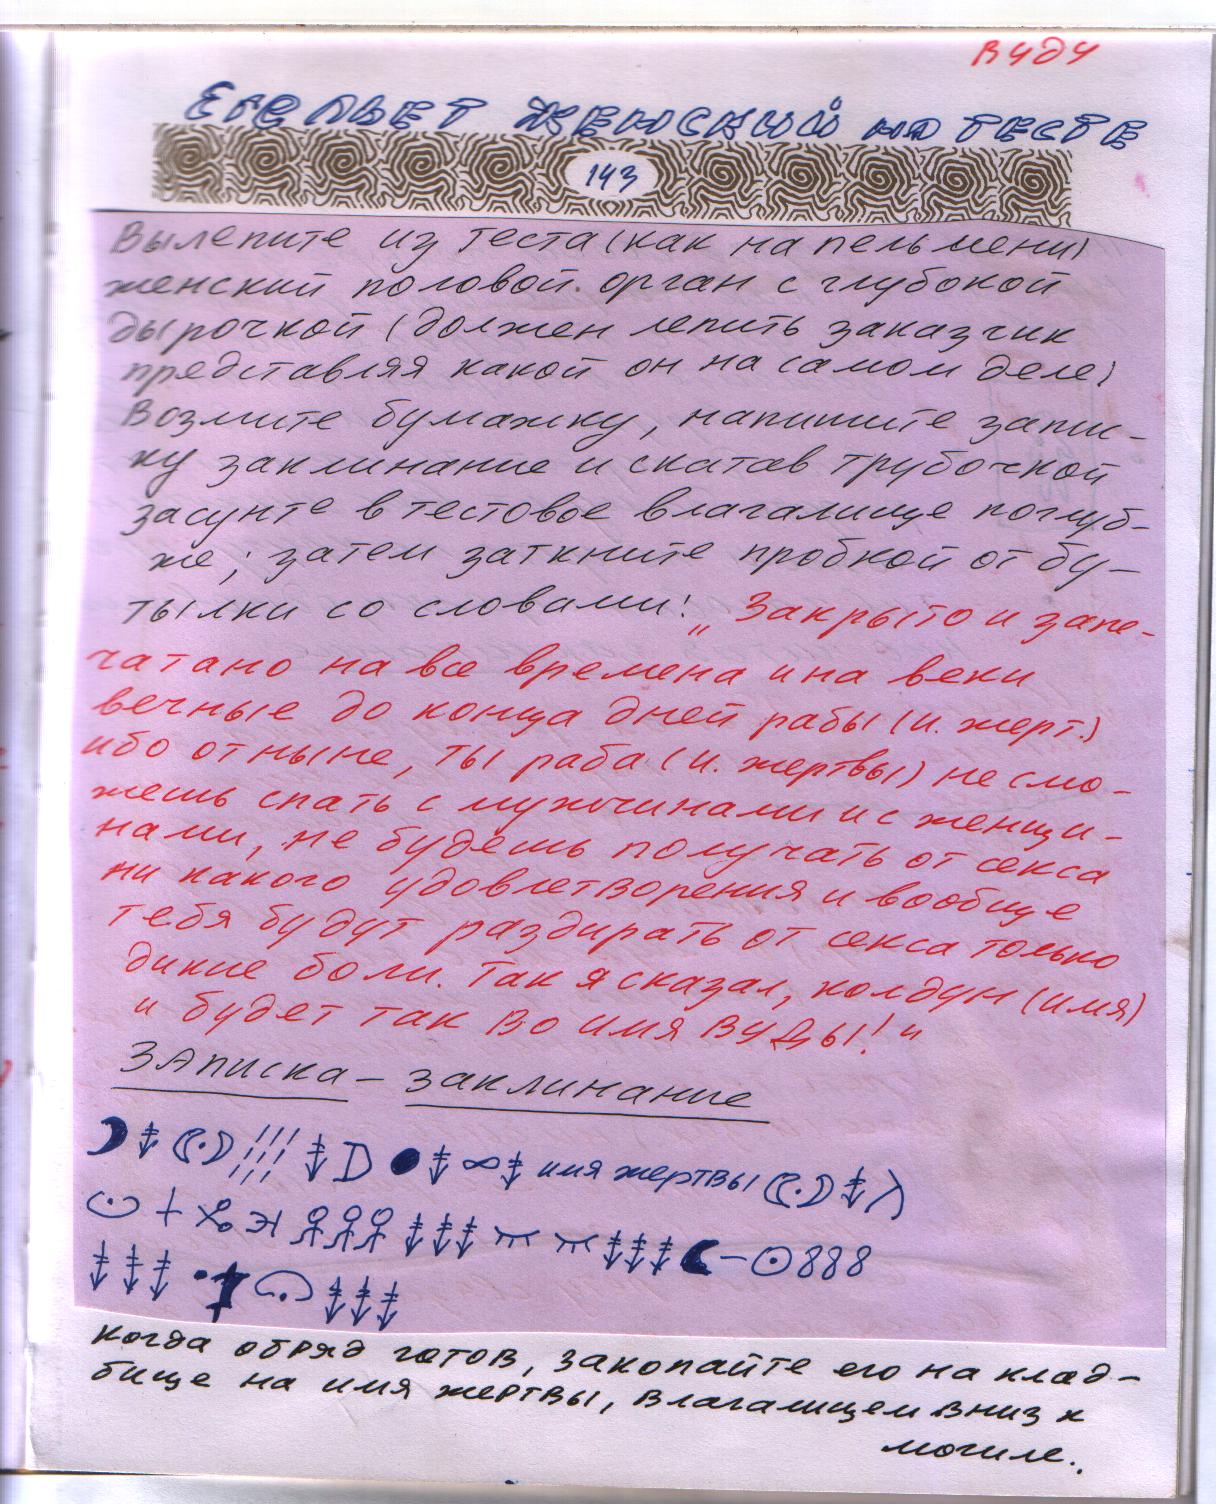 Вуду
Егельвет женский на тесте
143
Вылепите из теста (как на пельмени)
женский половой орган с глубокой
дырочкой (должен лепить заказчик
представляя какой он на самом деле)
Возмите бумажку, напишите запис-
ку заклинание и скатав трубочкой
засуnте в тестовое влагалище поглуб-
же; затем заткните пробкой от бу-
тылки со словами: „Закрыто и запе-
чатано на все времена и на веки
вечные до конца дней рабы (и. жерт.)
ибо отныне, ты раба (и. жертвы) не смо-
жешь спать с мужчинами и с женщи-
нами, не будешь получать от секса
ни какого удовлетворения и вообще
тебя будут раздирать от секса только
дикие боли. Так я сказал, колдун (имя)
и будет так во имя Вуды!"
Записка – заклинание
имя жертвы
888
когда обряд готов, закопайте его на клад-
бище на имя жертвы, влагалищем вниз к
могиле.